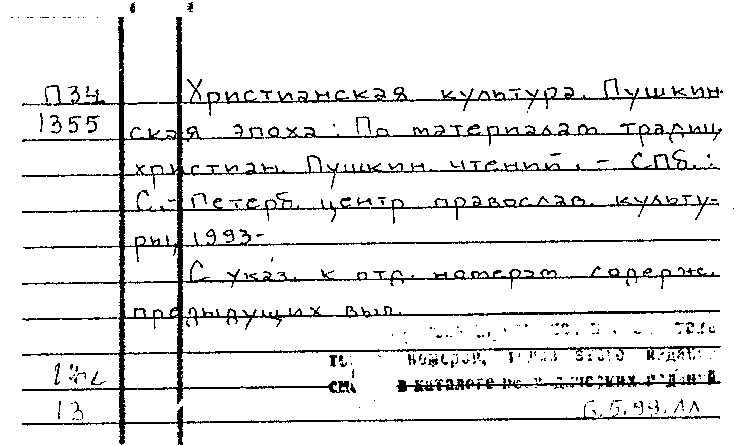 П34 Христианская культура. Пушкин
1355 ская эпоха: По материалам традиц.
христиан. Пушкин. чтений. - СПб.:
С.- Петерб. центр православ. культу-
ры, 1993-
С указ. к отд. номерам содерж.
предыдущих вып.
номеров, этого
см. в каталоге
13